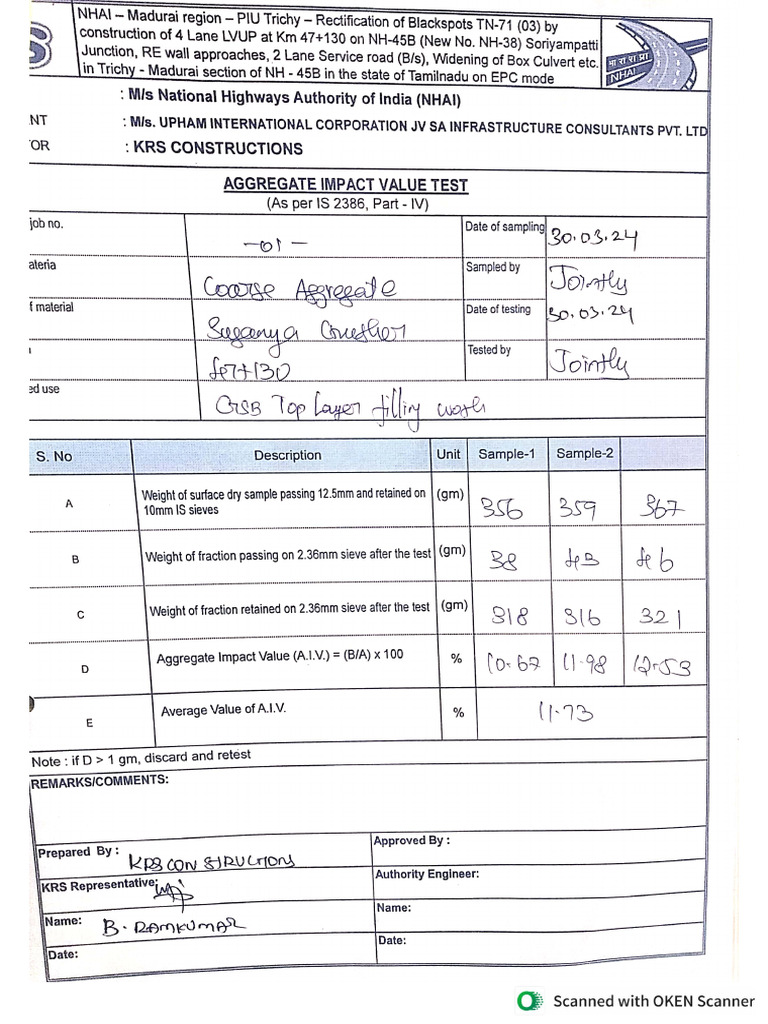 NHAI – Madurai region – PIU Trichy – Rectification of Blackspots TN-71 (03) by
construction of 4 Lane LVUP at Km 47+130 on NH-45B (New No. NH-38) Soriyampatti
Junction, RE wall approaches, 2 Lane Service road (B/s), Widening of Box Culvert etc.
in Trichy - Madurai section of NH - 45B in the state of Tamilnadu on EPC mode
NHAI
: M/s National Highways Authority of India (NHAI)
NT : M/s. UPHAM INTERNATIONAL CORPORATION JV SA INFRASTRUCTURE CONSULTANTS PVT. LTD
OR : KRS CONSTRUCTIONS
AGGREGATE IMPACT VALUE TEST
(As per IS 2386, Part - IV)
job no. -01- Date of sampling 30.03.24
ateria Coarse Aggregate Sampled by Jointly
f material Suganya Crusher Date of testing 30.03.24
47+130 Tested by Jointly
ed use GSB Top Layer filling work
S. No Description Unit Sample-1 Sample-2
A Weight of surface dry sample passing 12.5mm and retained on 10mm IS sieves (gm) 356 359 367
B Weight of fraction passing on 2.36mm sieve after the test (gm) 38 43 46
C Weight of fraction retained on 2.36mm sieve after the test (gm) 318 316 321
D Aggregate Impact Value (A.I.V.) = (B/A) x 100 % 10.67 11.98 12.53
E Average Value of A.I.V. % 11.73
Note : if D > 1 gm, discard and retest
REMARKS/COMMENTS:
Prepared By : KRS CONSTRUCTIONS Approved By :
KRS Representative: Authority Engineer:
Name: B. RAMKUMAR Name:
Date: Date:
Scanned with OKEN Scanner